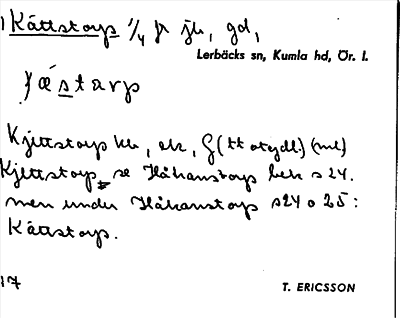 Kättstorp 1/4 fr jb, gd,
Lerbäcks sn, Kumla hd, Ör. l.
Kjettstorp kb, ek, G (tt otydl.) (ml)
Kjettstorp, se Håkanstorp bek s 24.
men under Håkanstorp s24 o 25:
Kättstorp.
17
T. ERICSSON